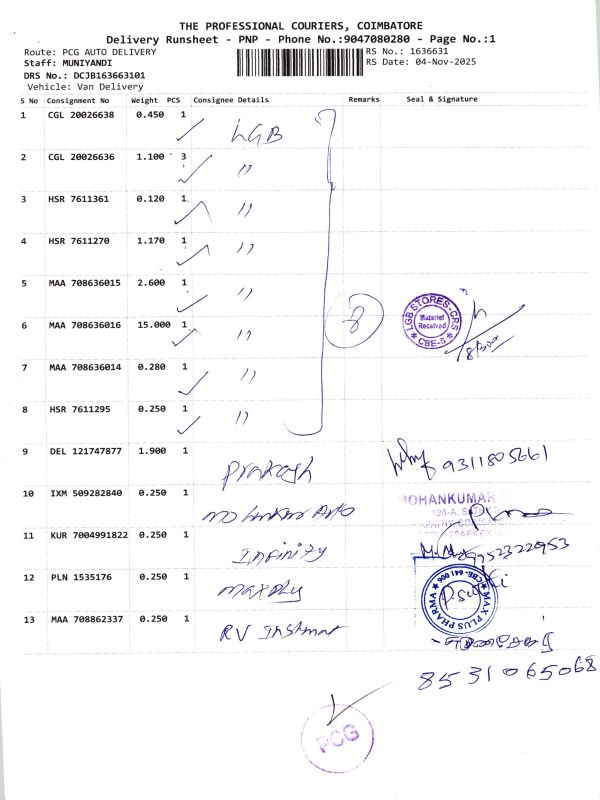 THE PROFESSIONAL COURIERS, COIMBATORE
Delivery Runsheet - PNP - Phone No.:9047080280 - Page No.:1
Route: PCG AUTO DELIVERY
RS No.: 1636631
Staff: MUNIYANDI
RS Date: 04-Nov-2025
DRS No.: DCJB163663101
Vehicle: Van Delivery
S No Consignment No Weight PCS Consignee Details Remarks Seal & Signature
1 CGL 20026638 0.450 1 LGB
2 CGL 20026636 1.100 3 "
3 HSR 7611361 0.120 1 "
4 HSR 7611270 1.170 1 "
5 MAA 708636015 2.600 1 "
8
LGB STORES-CRS
Material
Received
CBE-6
6 MAA 708636016 15.000 1 "
7 MAA 708636014 0.280 1 "
8 HSR 7611295 0.250 1 "
9 DEL 121747877 1.900 1 Prakash 9311805661
10 IXM 509282840 0.250 1
MOHANKUMAR
11 KUR 7004991822 0.250 1 Infinity
12 PLN 1535176 0.250 1 maxply
MAX PLUS PHARMA
CBE-641 006
13 MAA 708862337 0.250 1 RV
8531065068
PCG